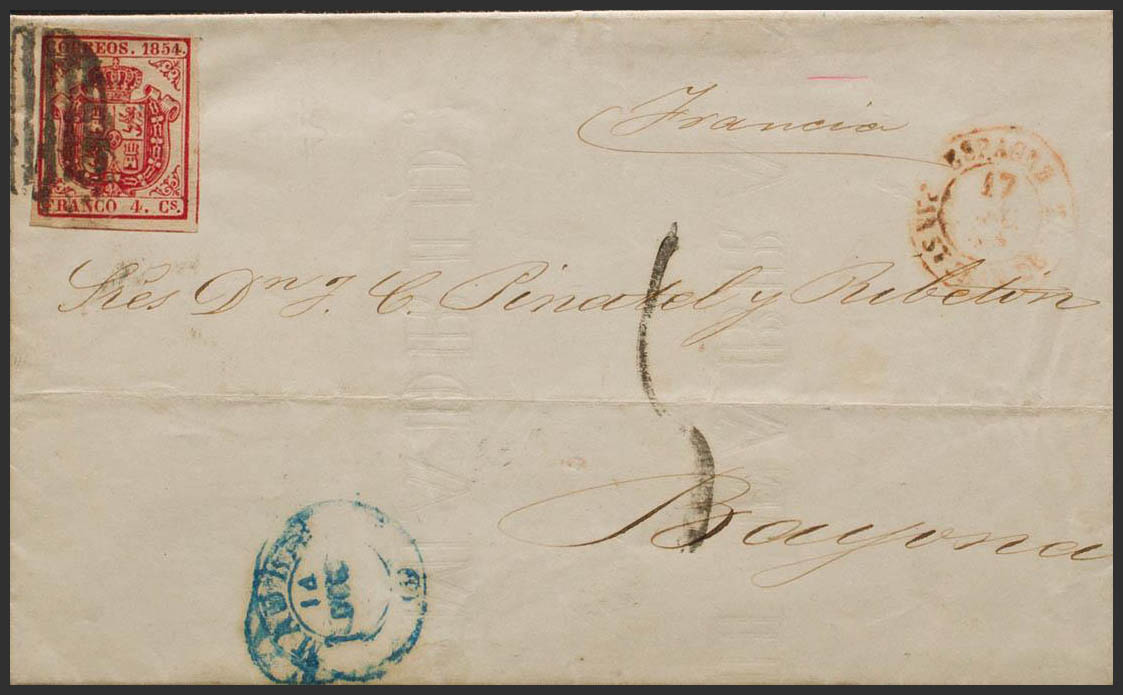 CORREOS. 1854.
FRANCO 4. Cs.
Francia
ESPAGNE
17
Sres Dn J. C. Pinatel y Ribeton
Bayona
14